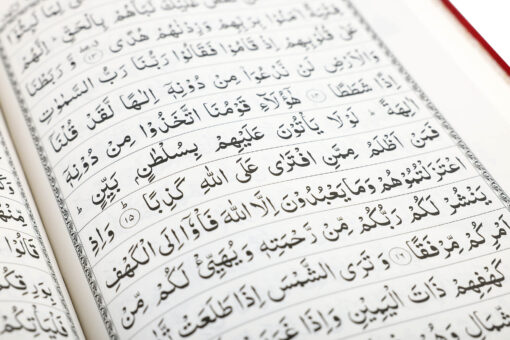 عَلَيْكَ نَبَاَهُمْ بِالْحَقِّ ؕ اِنَّهُمْ
فِتْيَةٌ اٰمَنُوْا بِرَبِّهِمْ وَزِدْنٰهُمْ هُدًى ۝۱۳ وَّ رَبَطْنَا
عَلٰى قُلُوْبِهِمْ اِذْ قَامُوْا فَقَالُوْا رَبُّنَا رَبُّ السَّمٰوٰتِ
وَالْاَرْضِ لَنْ نَّدْعُوَا۟ مِنْ دُوْنِهٖۤ اِلٰهًا لَّقَدْ قُلْنَاۤ
اِذًا شَطَطًا ۝۱۴ هٰۤؤُلَآءِ قَوْمُنَا اتَّخَذُوْا مِنْ دُوْنِهٖۤ
اٰلِهَةً ؕ لَوْلَا يَاْتُوْنَ عَلَيْهِمْ بِسُلْطٰنٍۭ بَيِّنٍ ؕ
فَمَنْ اَظْلَمُ مِمَّنِ افْتَرٰى عَلَى اللّٰهِ كَذِبًا ؕ ۝۱۵ وَاِذِ
اعْتَزَلْتُمُوْهُمْ وَمَا يَعْبُدُوْنَ اِلَّا اللّٰهَ فَاْوٗۤا اِلَى الْكَهْفِ
يَنْشُرْ لَكُمْ رَبُّكُمْ مِّنْ رَّحْمَتِهٖ وَيُهَيِّئْ لَكُمْ مِّنْ
مْرِكُمْ مِّرْفَقًا ۝۱۶ وَتَرَى الشَّمْسَ اِذَا طَلَعَتْ
كَهْفِهِمْ ذَاتَ الْيَمِيْنِ وَاِذَا
قَالُوْا
فَلْيَاْتِكُمْ